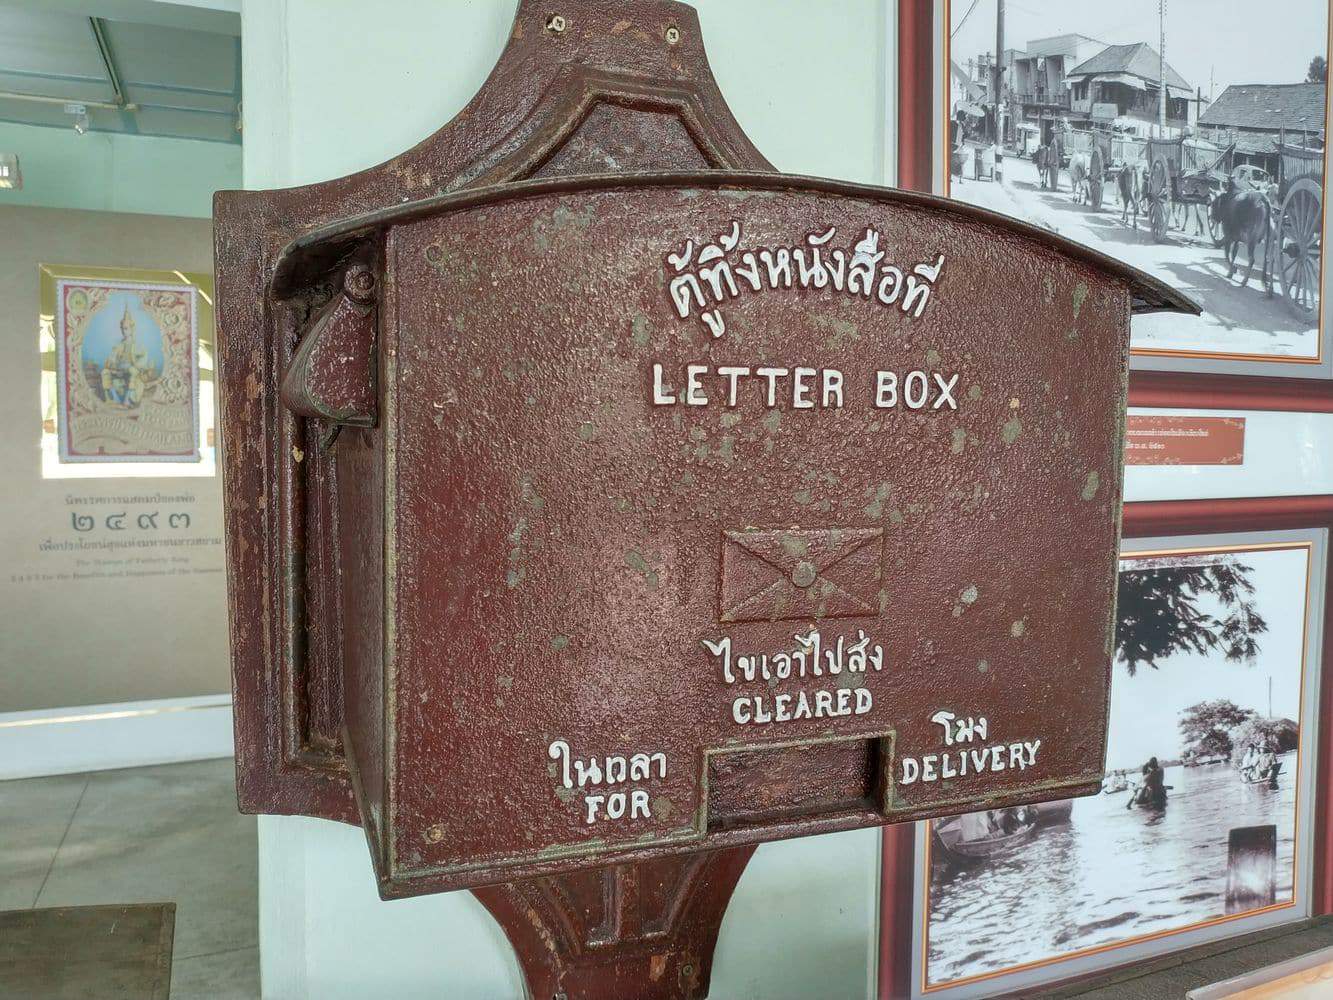 ตู้ทิ้งหนังสือที่
LETTER BOX
ไขเอาไปส่ง
CLEARED
ในเวลา
FOR
โมง
DELIVERY
นิทรรศการแสตมป์ของพ่อ
๒๔๙๓
เพื่อประโยชน์สุขแห่งมหาชนชาวสยาม
The Stamps of Fatherly King
2493 for the Benefits and Happiness of the Siamese